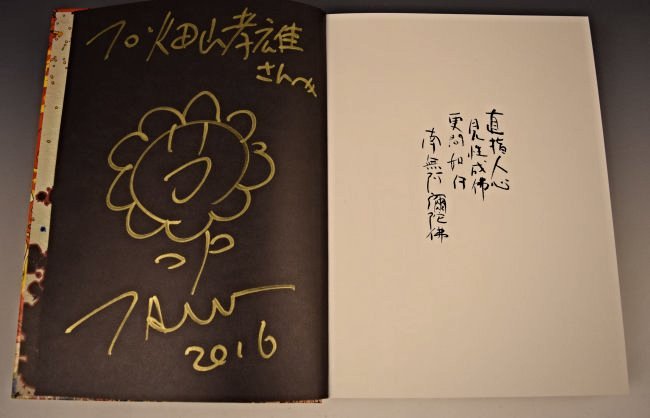 To. 畑山孝雄
さんへ
2016
直指人心
見性成佛
更問如何
南無阿彌陀佛